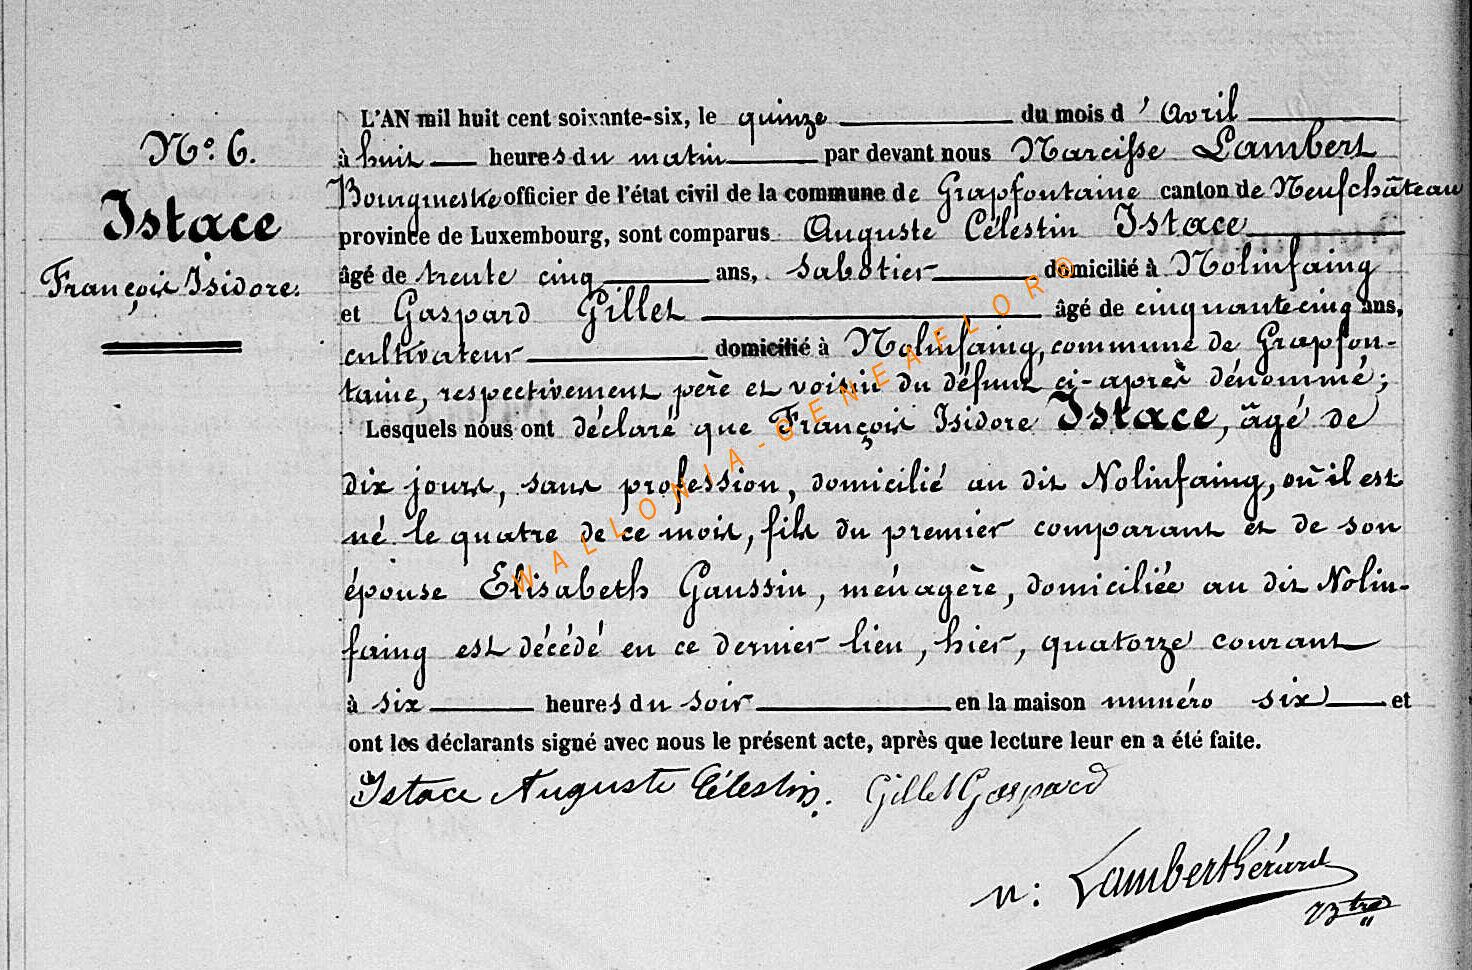 N.° 6.
Istace
François Isidore.
L'AN mil huit cent soixante-six, le quinze du mois d'Avril
à huit heures du matin par devant nous Narcisse Lambert
Bourgmestre officier de l'état civil de la commune de Grapfontaine canton de Neufchâteau
province de Luxembourg, sont comparus Auguste Célestin Istace
âgé de trente cinq ans, sabotier domicilié à Nolinfaing
et Gaspard Gillet âgé de cinquante cinq ans,
cultivateur domicilié à Nolinfaing, commune de Grapfon-
taine, respectivement père et voisin du défunt ci-après dénommé;
Lesquels nous ont déclaré que François Isidore Istace, âgé de
dix jours, sans profession, domicilié au dit Nolinfaing, où il est
né le quatre de ce mois, fils du premier comparant et de son
épouse Elisabeth Gaussin, ménagère, domiciliée au dit Nolin-
faing est décédé en ce dernier lieu, hier, quatorze courant
à six heures du soir en la maison numéro six et
ont les déclarants signé avec nous le présent acte, après que lecture leur en a été faite.
Istace Auguste Célestin. Gillet Gaspard
N: Lambert Gérard
WALLONIA-GENEALOR©